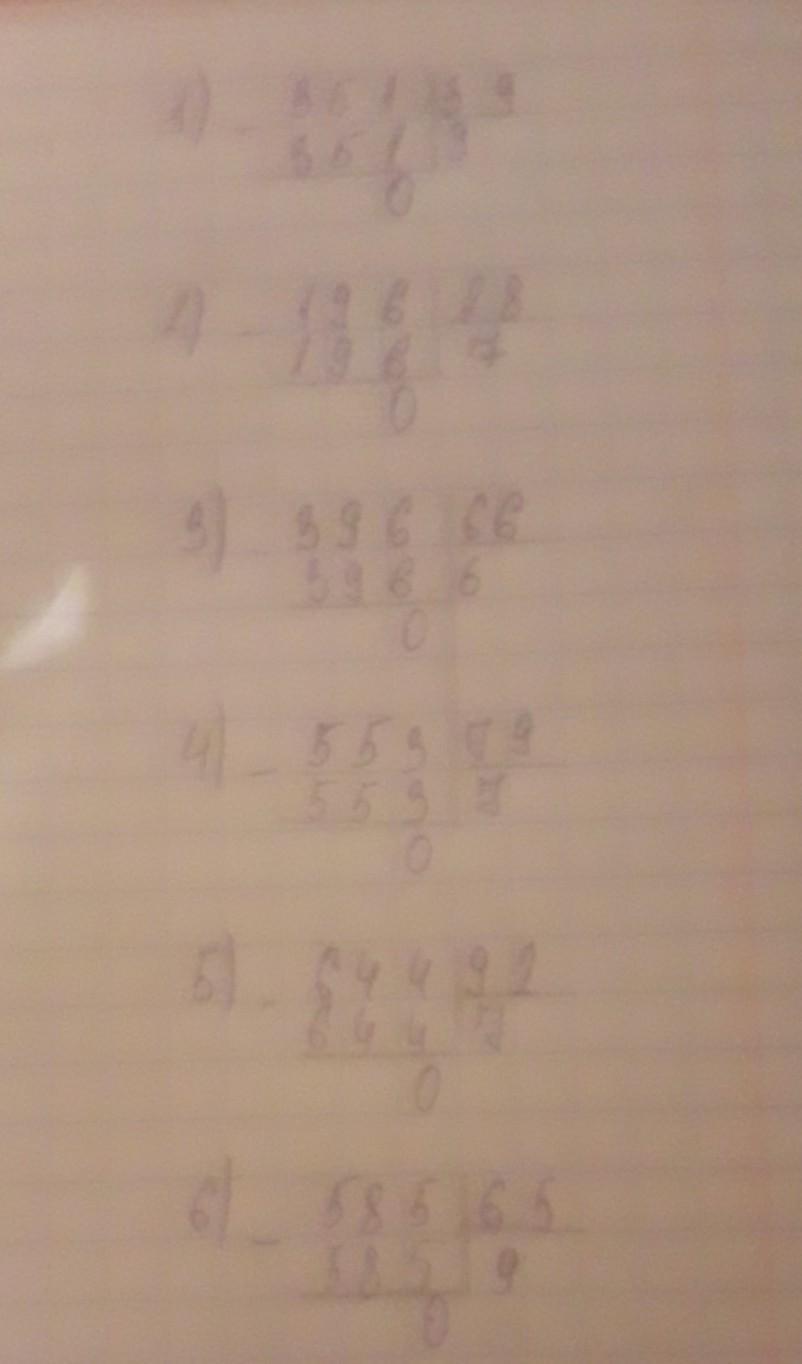 1) - 351 39
351 9
0
2) - 196 28
196 7
0
3) - 396 66
396 6
0
4) - 553 79
553 7
0
5) - 644 92
644 7
0
6) - 585 65
585 9
0